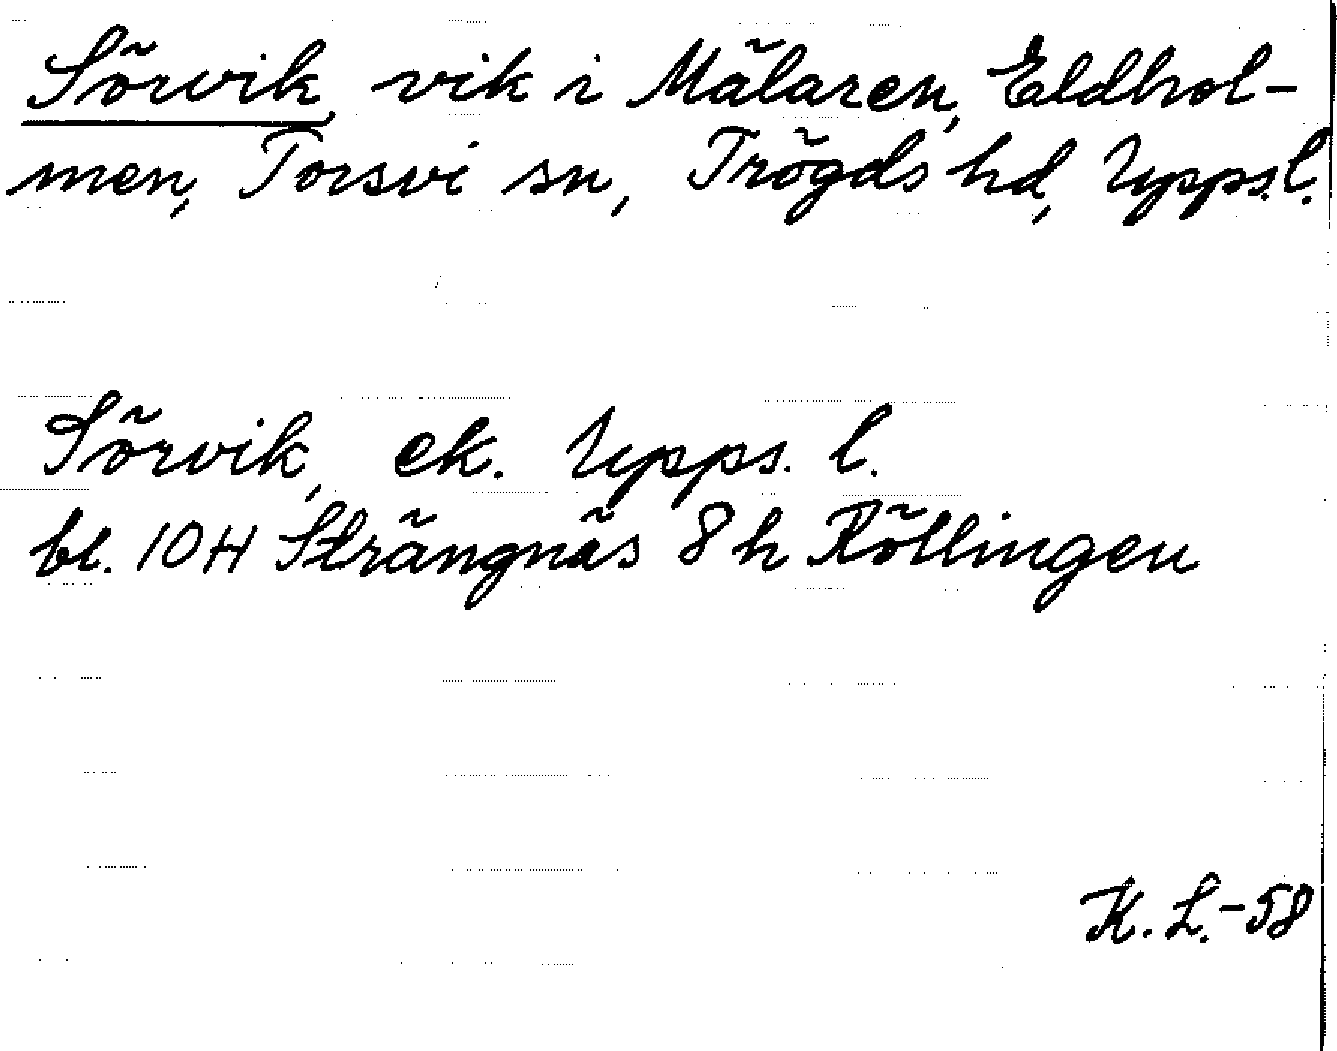 Sörvik, vik i Mälaren, Eldhol-
men, Torsvi sn, Trögds hd, Upps.l.
Sörvik, ek. Upps. l.
bl. 10H Strängnäs 8h Röllingen
K. L.-58